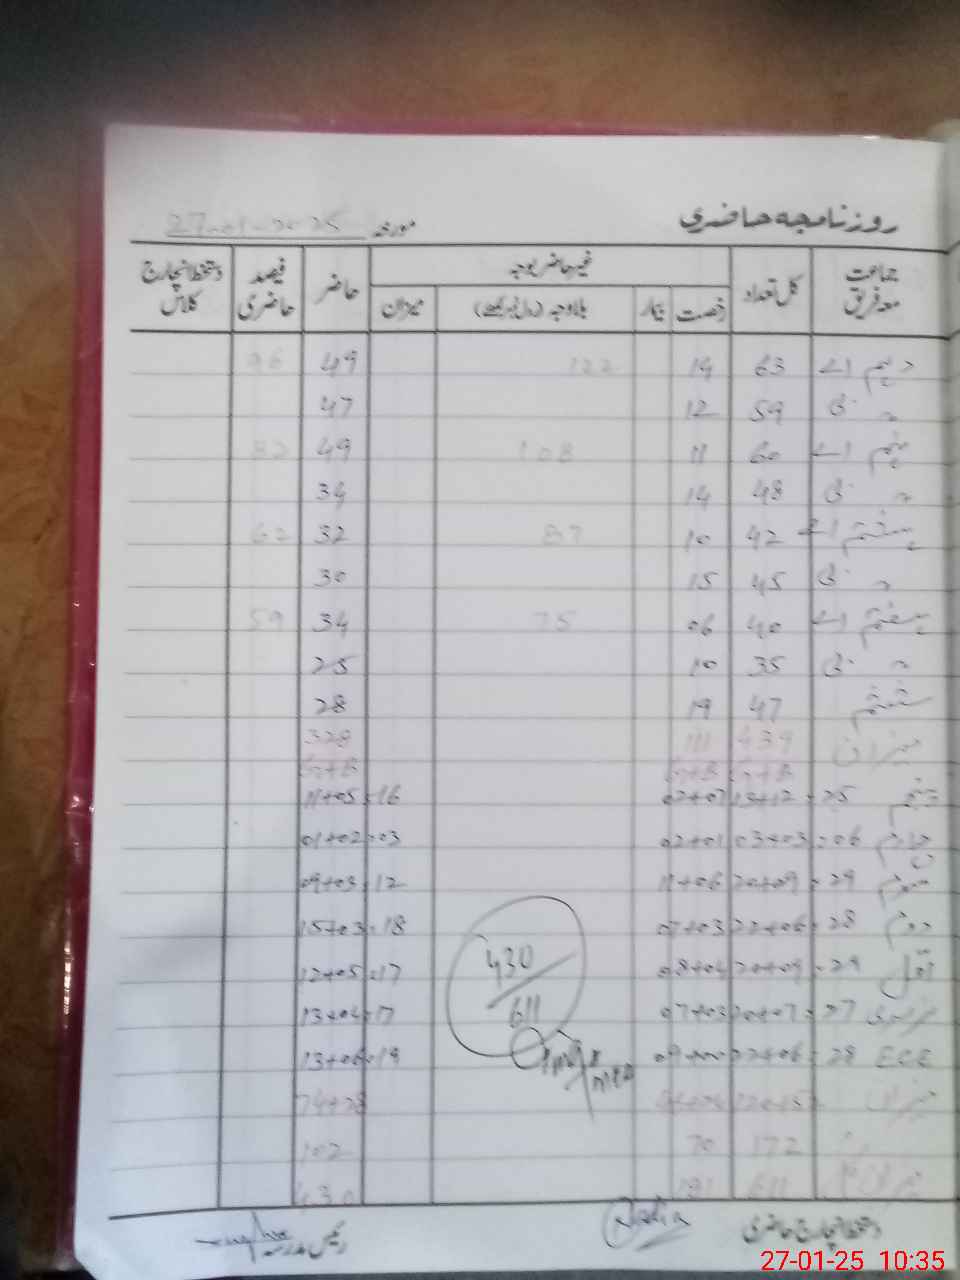 روزنامچہ حاضری مورخہ 27-01-2025
جماعت معہ فریق کل تعداد غیر حاضر بوجہ حاضر فیصد حاضری دستخط انچارج کلاس
رخصت بیمار بلاوجہ (رول نمبر لکھیے) میزان
دہم اے 63 14 122 49 96
〃 بی 59 12 47
نہم اے 60 11 108 49 82
〃 بی 48 14 34
ہشتم اے 42 10 87 32 62
〃 بی 45 15 30
ہفتم اے 40 06 75 34 59
〃 بی 35 10 25
ششم 47 19 28
میزان 439 111 328
G+B G+B G+B
پنجم 25 = 13+12 02+07 11+05=16
چہارم 06 = 03+03 02+01 01+02=03
سوم 29 = 20+09 11+06 09+03=12
دوم 28 = 22+06 07+03 15+03=18
اول 29 = 20+09 08+04 12+05=17
نرسری 27 = 20+07 07+03 13+04=17
ECE 28 = 22+06 13+06=19
میزان 74+28
172 70 102
611 181 430
430/611
دستخط انچارج حاضری Nadia رئیس مدرسہ
27-01-25 10:35